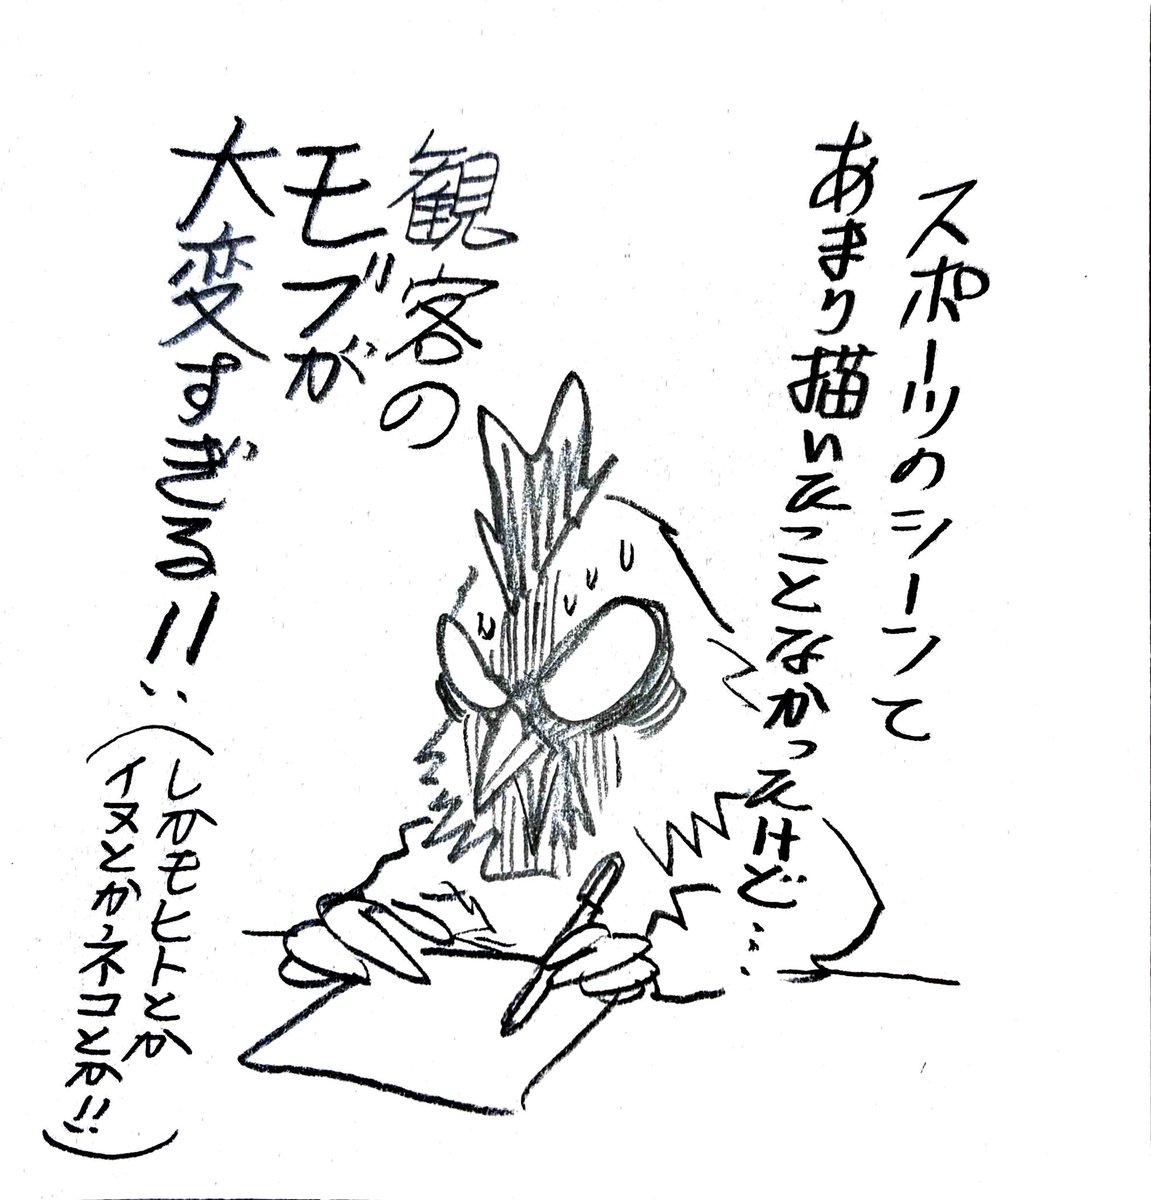 スポーツのシーンて
あまり描いたことなかったけど…
観客の
モブが
大変すぎる!!
(しかもヒトとか
イヌとかネコとか!!)